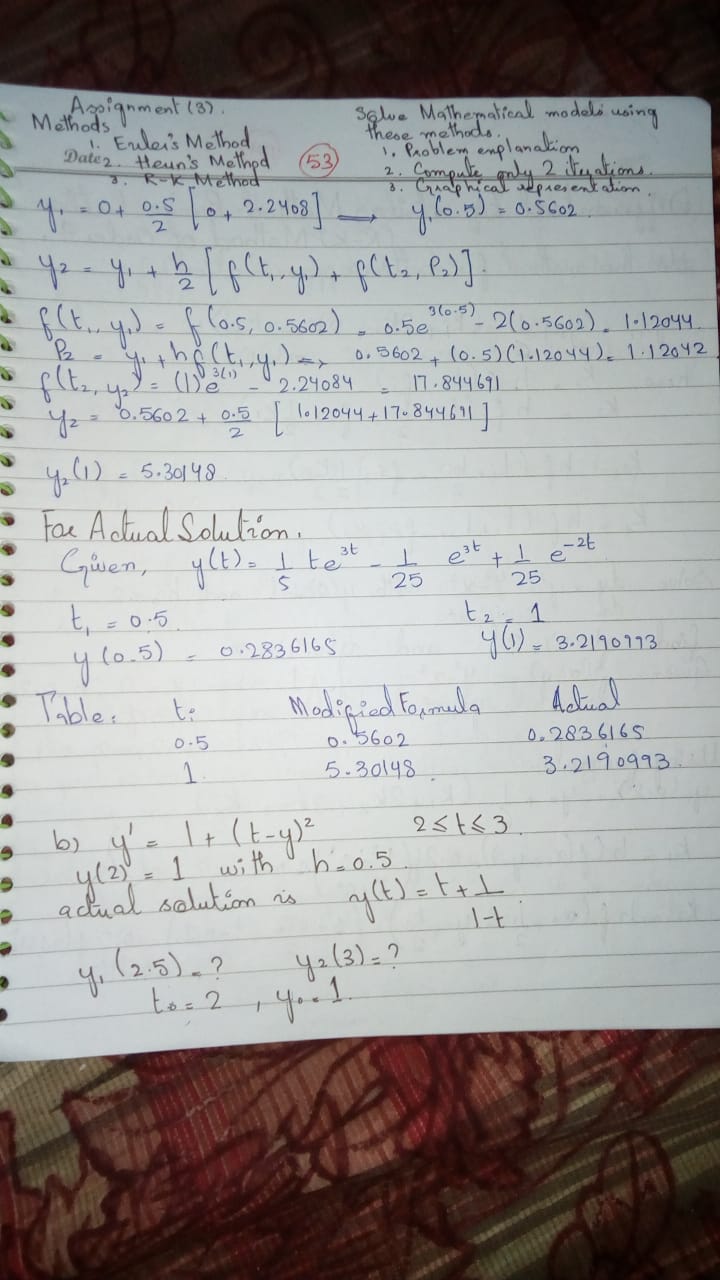 Assignment (3).
Methods
1. Euler's Method
Date 2. Heun's Method
3. R-K Method
53
Solve Mathematical models using
these methods.
1. Problem explanation
2. Compute only 2 iterations.
3. Graphical representation.
y₁ = 0 + 0.5/2 [0 + 2.2408] → y₁(0.5) = 0.5602
y₂ = y₁ + h/2 [f(t₁, y₁) + f(t₂, P₂)].
f(t₁, y₁) = f(0.5, 0.5602) = 0.5e^3(0.5) - 2(0.5602) = 1.12044
P₂ = y₁ + hf(t₁, y₁) => 0.5602 + (0.5)(1.12044) = 1.12042
f(t₂, y₂) = (1)e^3(1) - 2.24084 = 17.844691
y₂ = 0.5602 + 0.5/2 [1.12044 + 17.844691]
y₂(1) = 5.30148
For Actual Solution.
Given, y(t) = 1/5 te^3t - 1/25 e^3t + 1/25 e^-2t
t₁ = 0.5 t₂ = 1
y(0.5) = 0.2836165 y(1) = 3.2190993
Table: tᵢ Modified Formula Actual
0.5 0.5602 0.2836165
1 5.30148 3.2190993
b) y' = 1 + (t-y)² 2 ≤ t ≤ 3
y(2) = 1 with h = 0.5
actual solution is y(t) = t + 1/1-t
y₁(2.5) = ? y₂(3) = ?
t₀ = 2, y₀ = 1